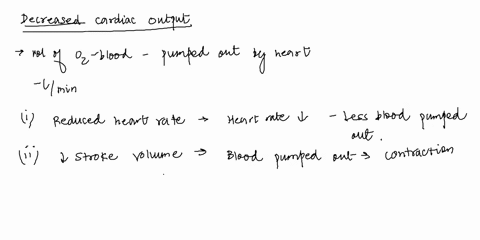 Decreased cardiac output
→ vol of O2-blood - pumped out by heart
-L/min
(i) Reduced heart rate → Heart rate ↓ - Less blood pumped
out.
(ii) ↓ stroke volume → Blood pumped out → contraction